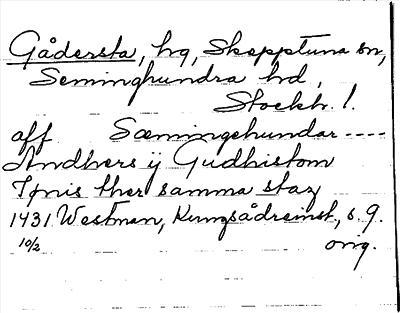 Gådersta, hg, Skepptuna sn,
Seminghundra hd,
Stockh. l.
aff Sæmingehundar ----
Andhers ij Gudhistom
Tönis ther samma staz
1431 Westman, Kungsådreinst, s. 9.
10/2 orig.